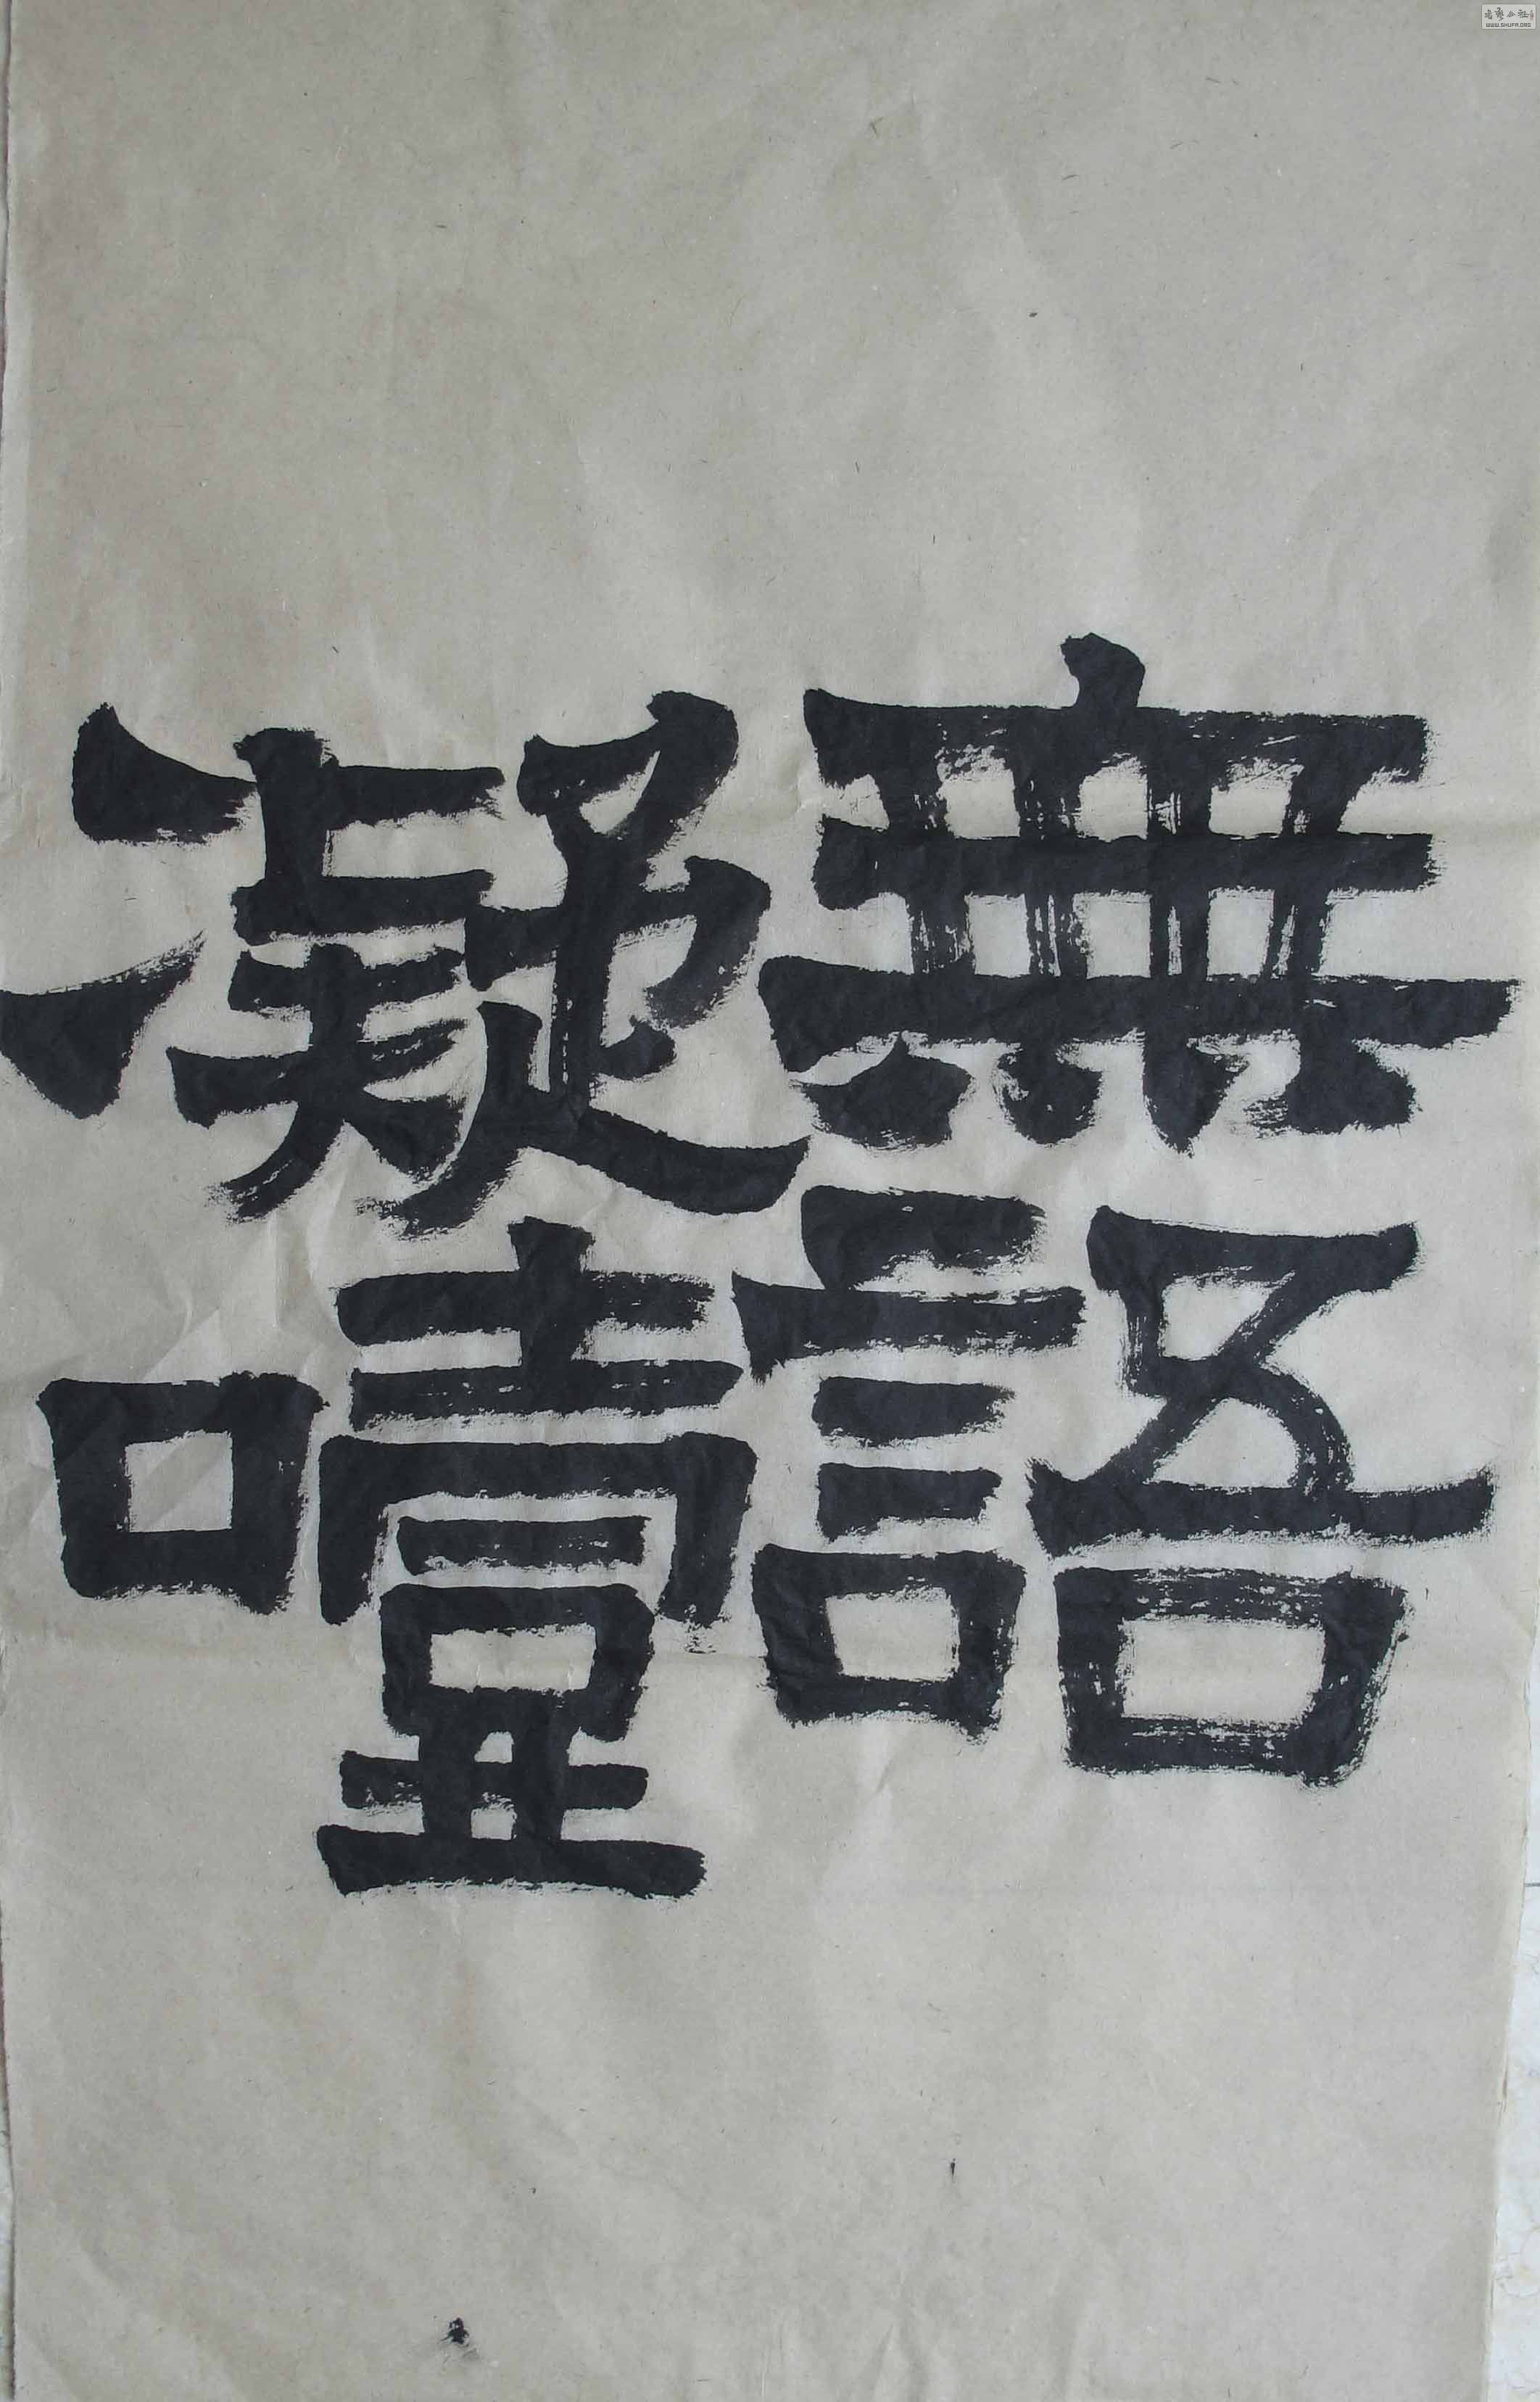 無語
凝噎
WWW.SHUFA.ORG